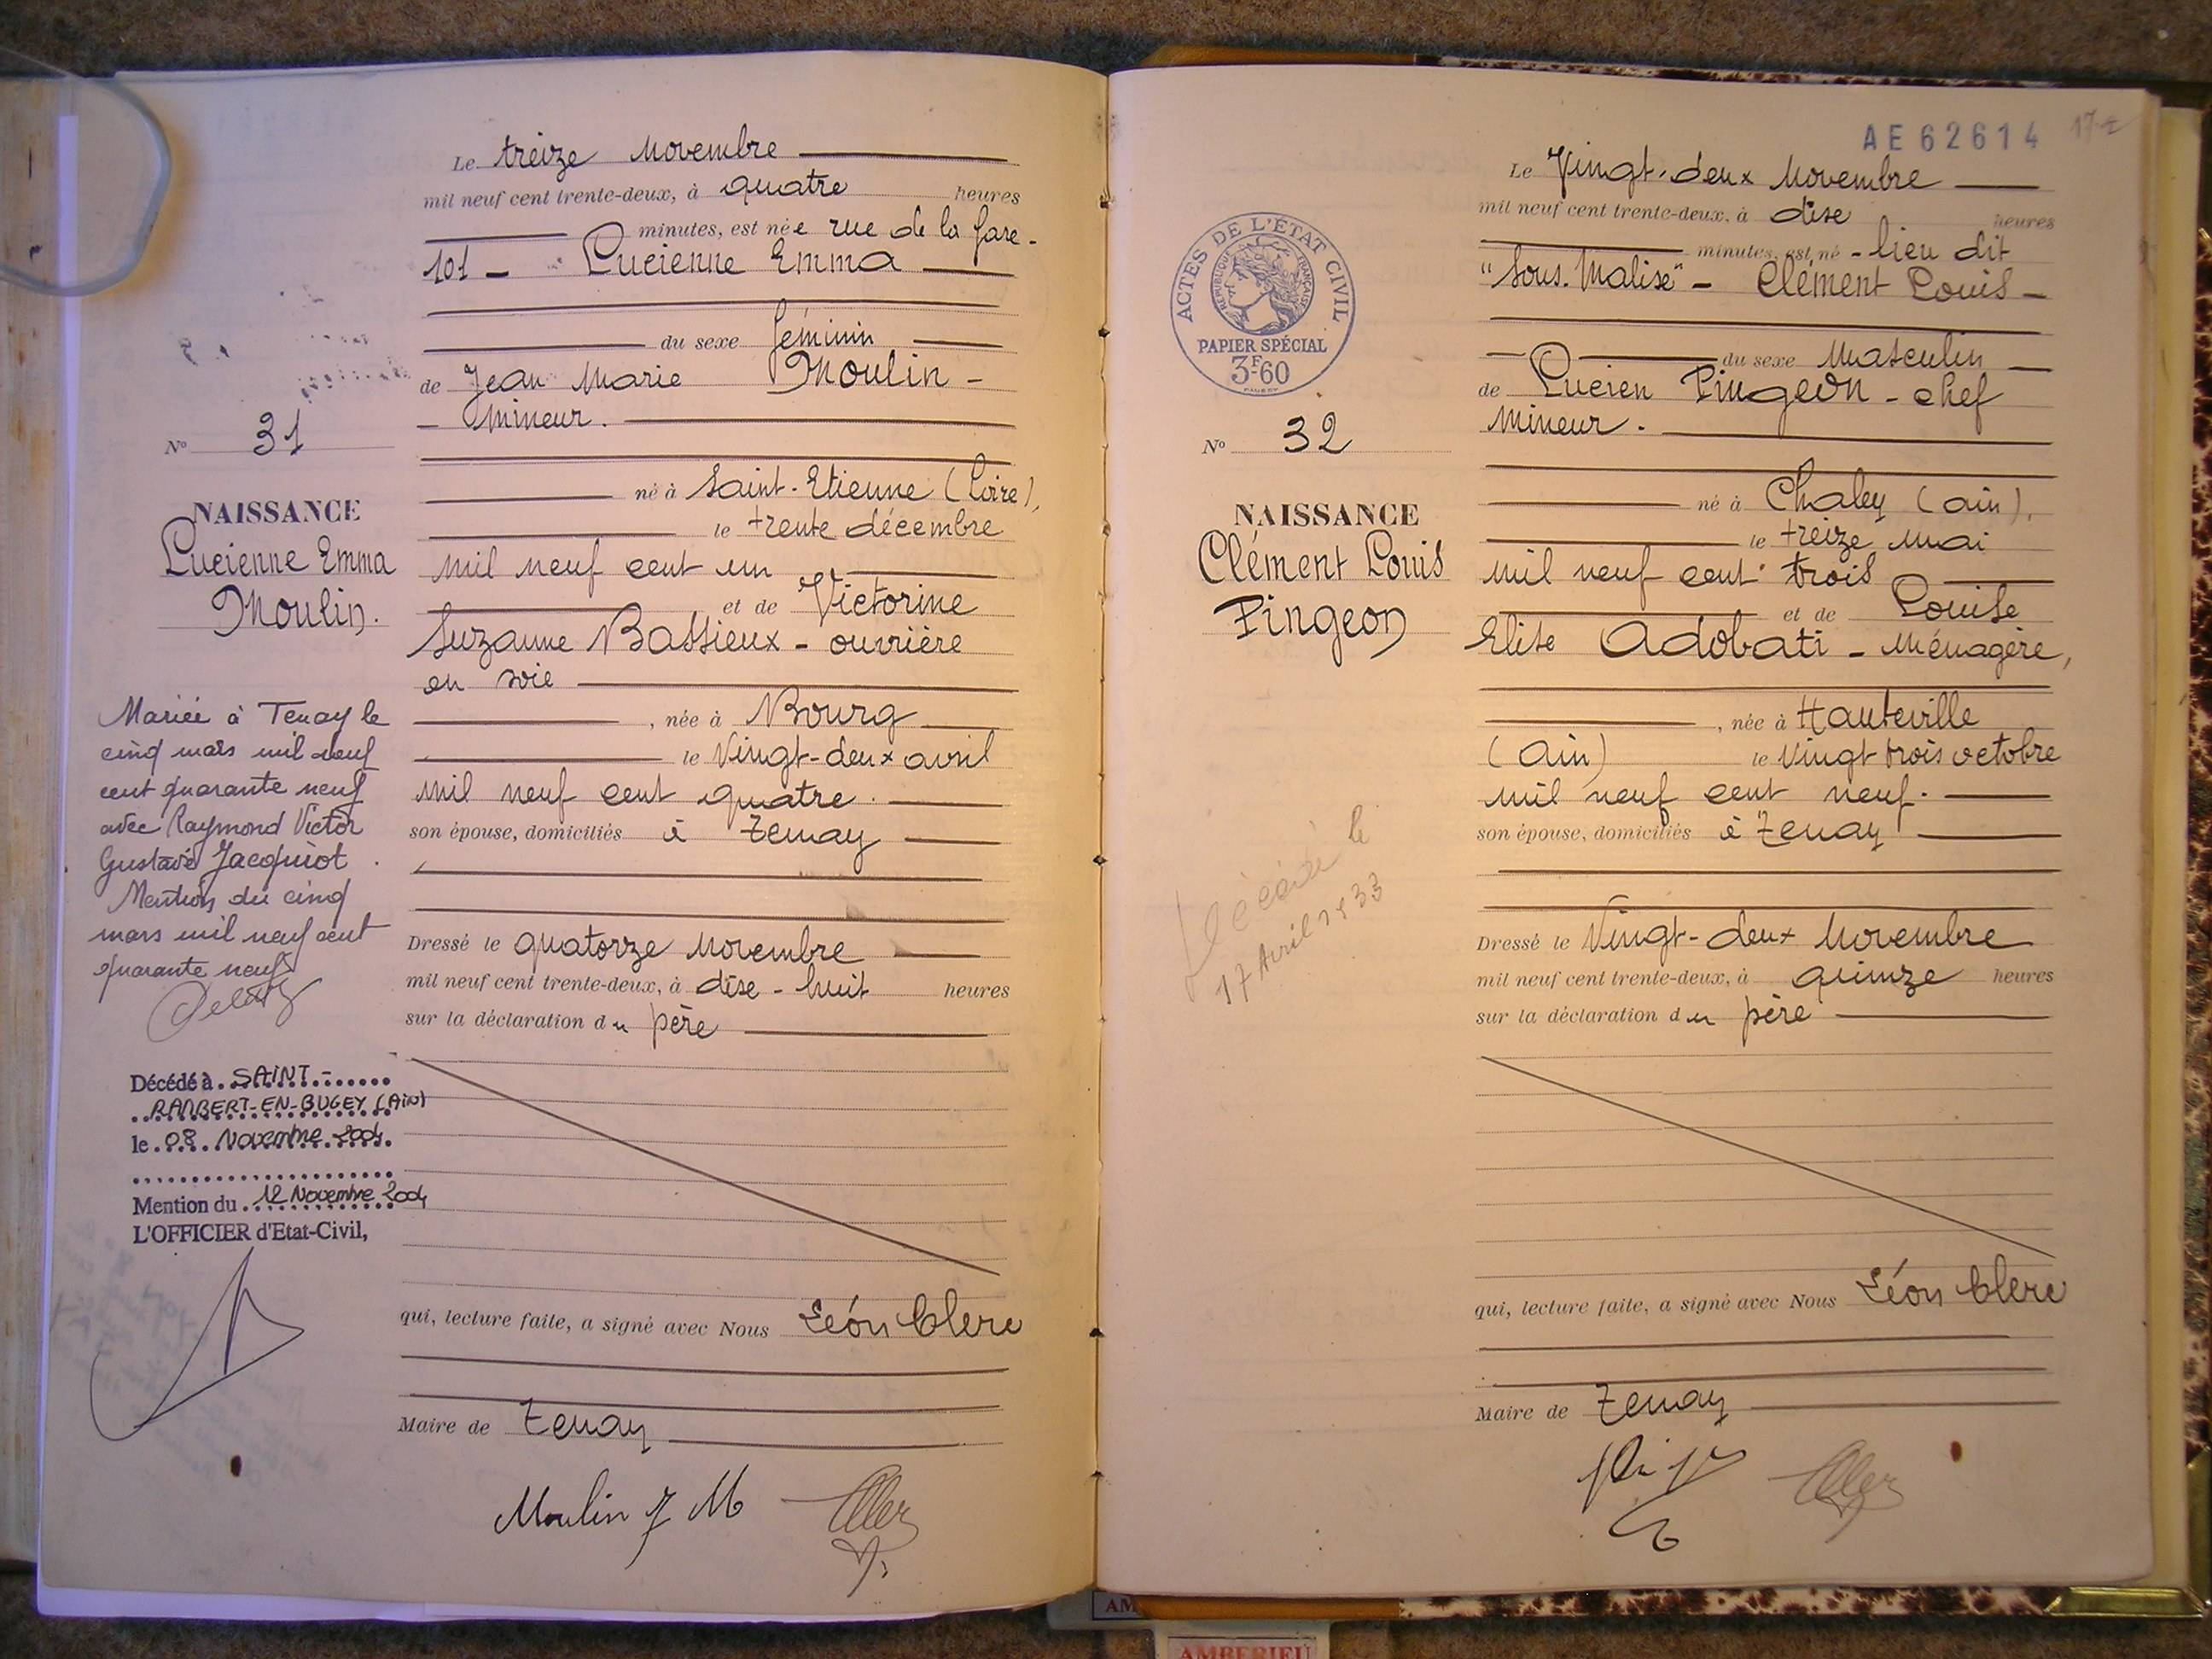 Le treize Novembre
mil neuf cent trente-deux, à quatre heures
minutes, est née rue de la Gare-
101 - Lucienne Emma
du sexe féminin
de Jean Marie Moulin -
- Mineur.
né à Saint-Etienne (Loire),
le trente décembre
mil neuf cent un
et de Victorine
Suzanne Bassieux - ouvrière
en soie
, née à Bourg
le Vingt-deux avril
mil neuf cent quatre.
son épouse, domiciliés à Tenay
Dressé le quatorze Novembre
mil neuf cent trente-deux, à dise-huit heures
sur la déclaration du père
qui, lecture faite, a signé avec Nous Léon Clerc
Maire de Tenay
Moulin J M
No 31
NAISSANCE
Lucienne Emma
Moulin.
Mariée à Tenay le
cinq mars mil neuf
cent quarante neuf
avec Raymond Victor
Gustave Jacquiot
Mention du cinq
mars mil neuf cent
quarante neuf
Décédé à SAINT-
RAMBERT-EN-BUGEY (AiN)
le 08 Novembre 2004
Mention du 12 Novembre 2004
L'OFFICIER d'Etat-Civil,
AE62614
ACTES DE L'ÉTAT CIVIL
RÉPUBLIQUE FRANÇAISE
PAPIER SPÉCIAL
3F60
No 32
NAISSANCE
Clément Louis
Pingeon
Décédé le
17 Avril 1933
Le Vingt-deux Novembre
mil neuf cent trente-deux, à dise heures
minutes, est né - lieu dit
"Sous-Malise" - Clément Louis -
du sexe Masculin
de Lucien Pingeon - chef
mineur.
né à Chaley (ain),
le treize mai
mil neuf cent trois
et de Louise
Elise Adobati - Ménagère,
, née à Hauteville
(Ain) le Vingt trois octobre
mil neuf cent neuf.
son épouse, domiciliés à Tenay
Dressé le Vingt-deux Novembre
mil neuf cent trente-deux, à quinze heures
sur la déclaration du père
qui, lecture faite, a signé avec Nous Léon Clerc
Maire de Tenay
AM
AMBERIEU